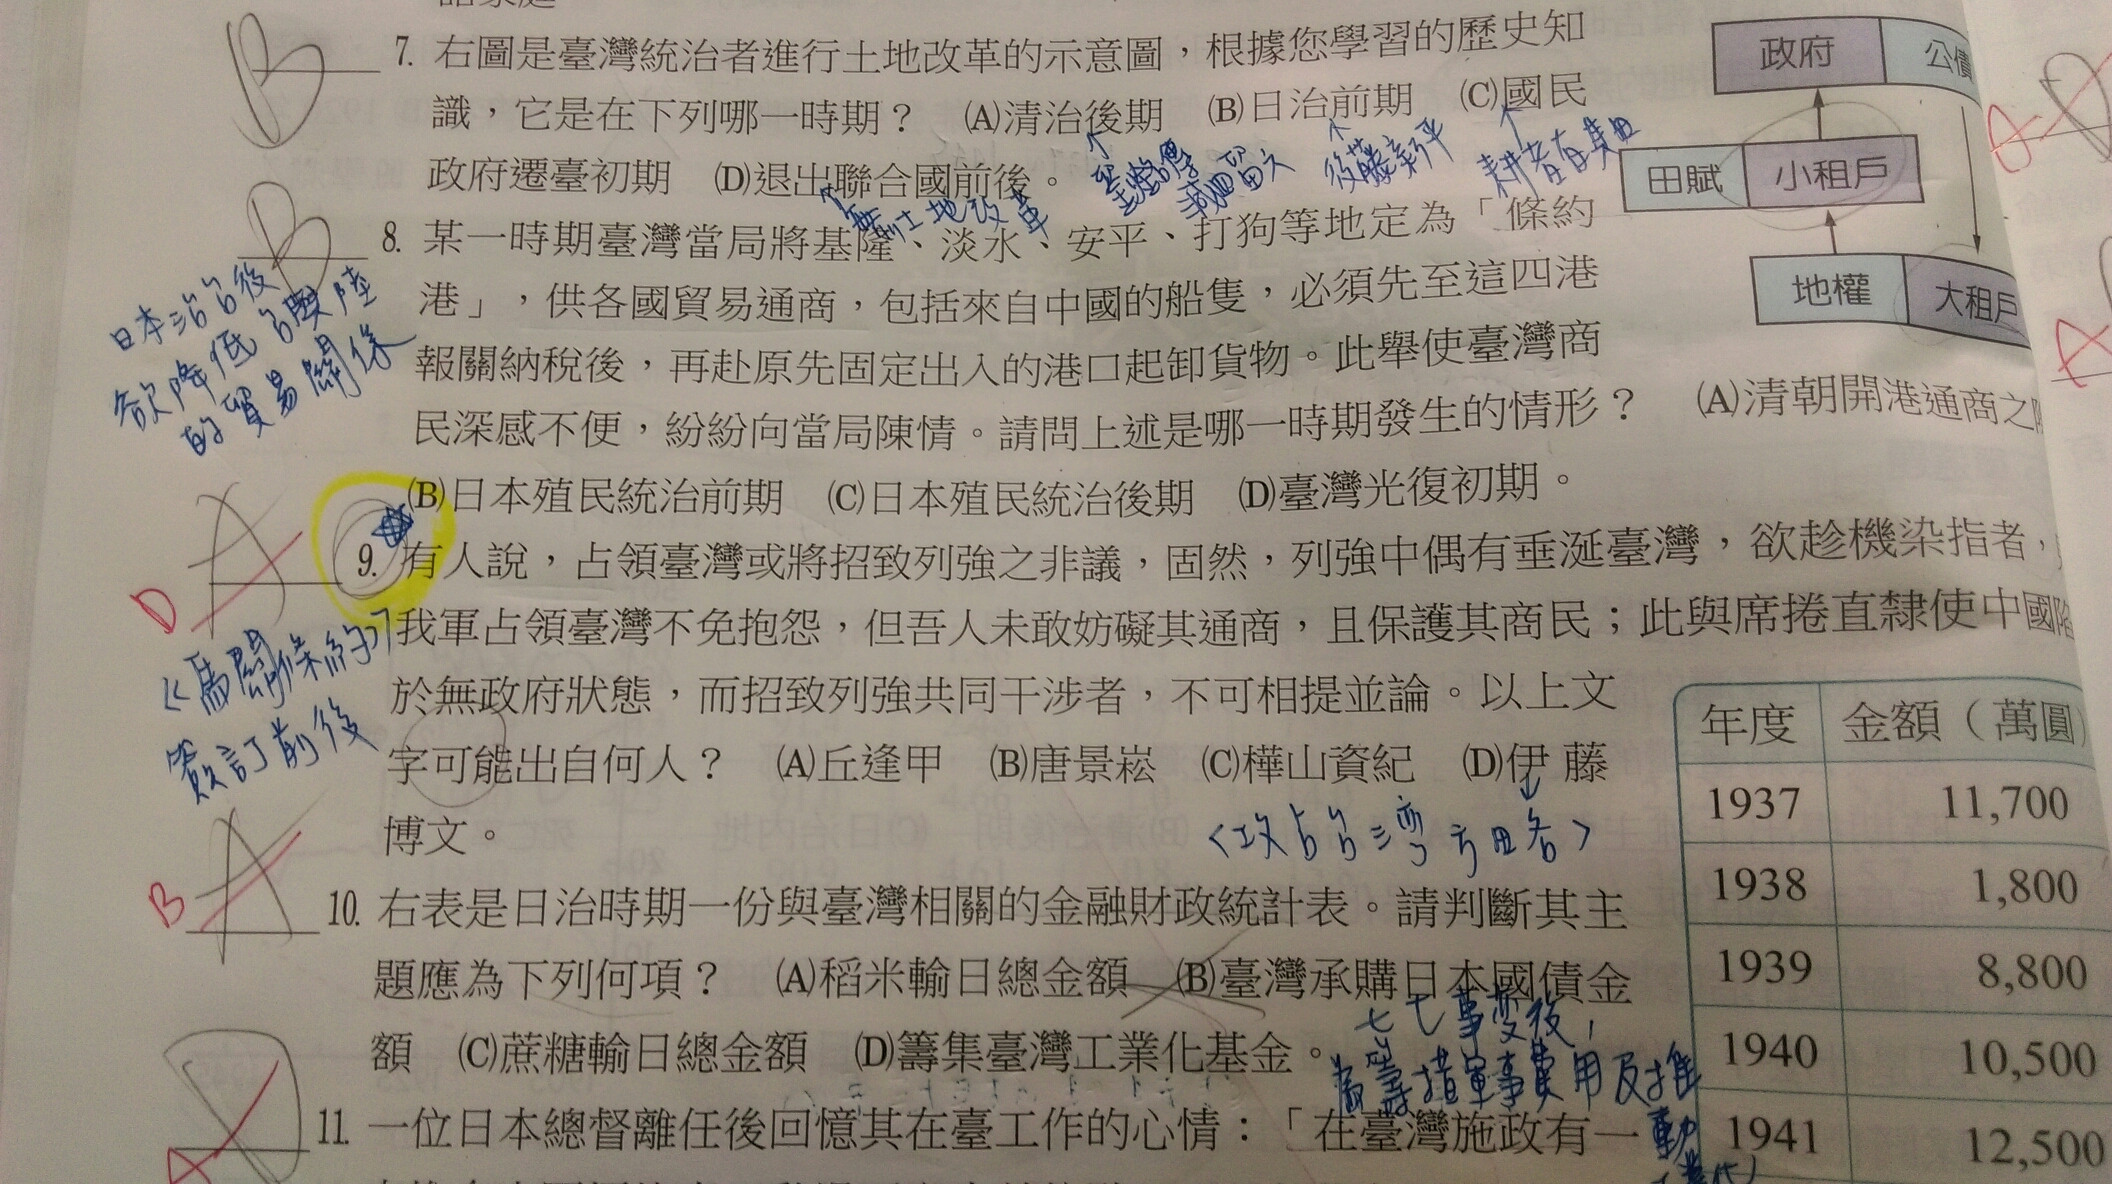 B
7. 右圖是臺灣統治者進行土地改革的示意圖，根據您學習的歷史知
識，它是在下列哪一時期？ (A)清治後期 (B)日治前期 (C)國民
政府遷臺初期 (D)退出聯合國前後。
劉銘傳 減四留六
後藤新平
耕者有其田
無土地改革
政府 公債
田賦 小租戶
地權 大租戶
B
8. 某一時期臺灣當局將基隆、淡水、安平、打狗等地定為「條約
港」，供各國貿易通商，包括來自中國的船隻，必須先至這四港
報關納稅後，再赴原先固定出入的港口起卸貨物。此舉使臺灣商
民深感不便，紛紛向當局陳情。請問上述是哪一時期發生的情形？ (A)清朝開港通商之
(B)日本殖民統治前期 (C)日本殖民統治後期 (D)臺灣光復初期。
日本治台後
欲降低台與陸
的貿易關係
A
D
9. 有人說，占領臺灣或將招致列強之非議，固然，列強中偶有垂涎臺灣，欲趁機染指者，
我軍占領臺灣不免抱怨，但吾人未敢妨礙其通商，且保護其商民；此與席捲直隸使中國陷
於無政府狀態，而招致列強共同干涉者，不可相提並論。以上文
字可能出自何人？ (A)丘逢甲 (B)唐景崧 (C)樺山資紀 (D)伊藤
博文。
《馬關條約》
簽訂前後
〈攻占台灣方略〉
A
B
10. 右表是日治時期一份與臺灣相關的金融財政統計表。請判斷其主
題應為下列何項？ (A)稻米輸日總金額 (B)臺灣承購日本國債金
額 (C)蔗糖輸日總金額 (D)籌集臺灣工業化基金。
七七事變後，
為籌措軍事費用及推
動
年度 金額（萬圓）
1937 11,700
1938 1,800
1939 8,800
1940 10,500
1941 12,500
A
11. 一位日本總督離任後回憶其在臺工作的心情：「在臺灣施政有一